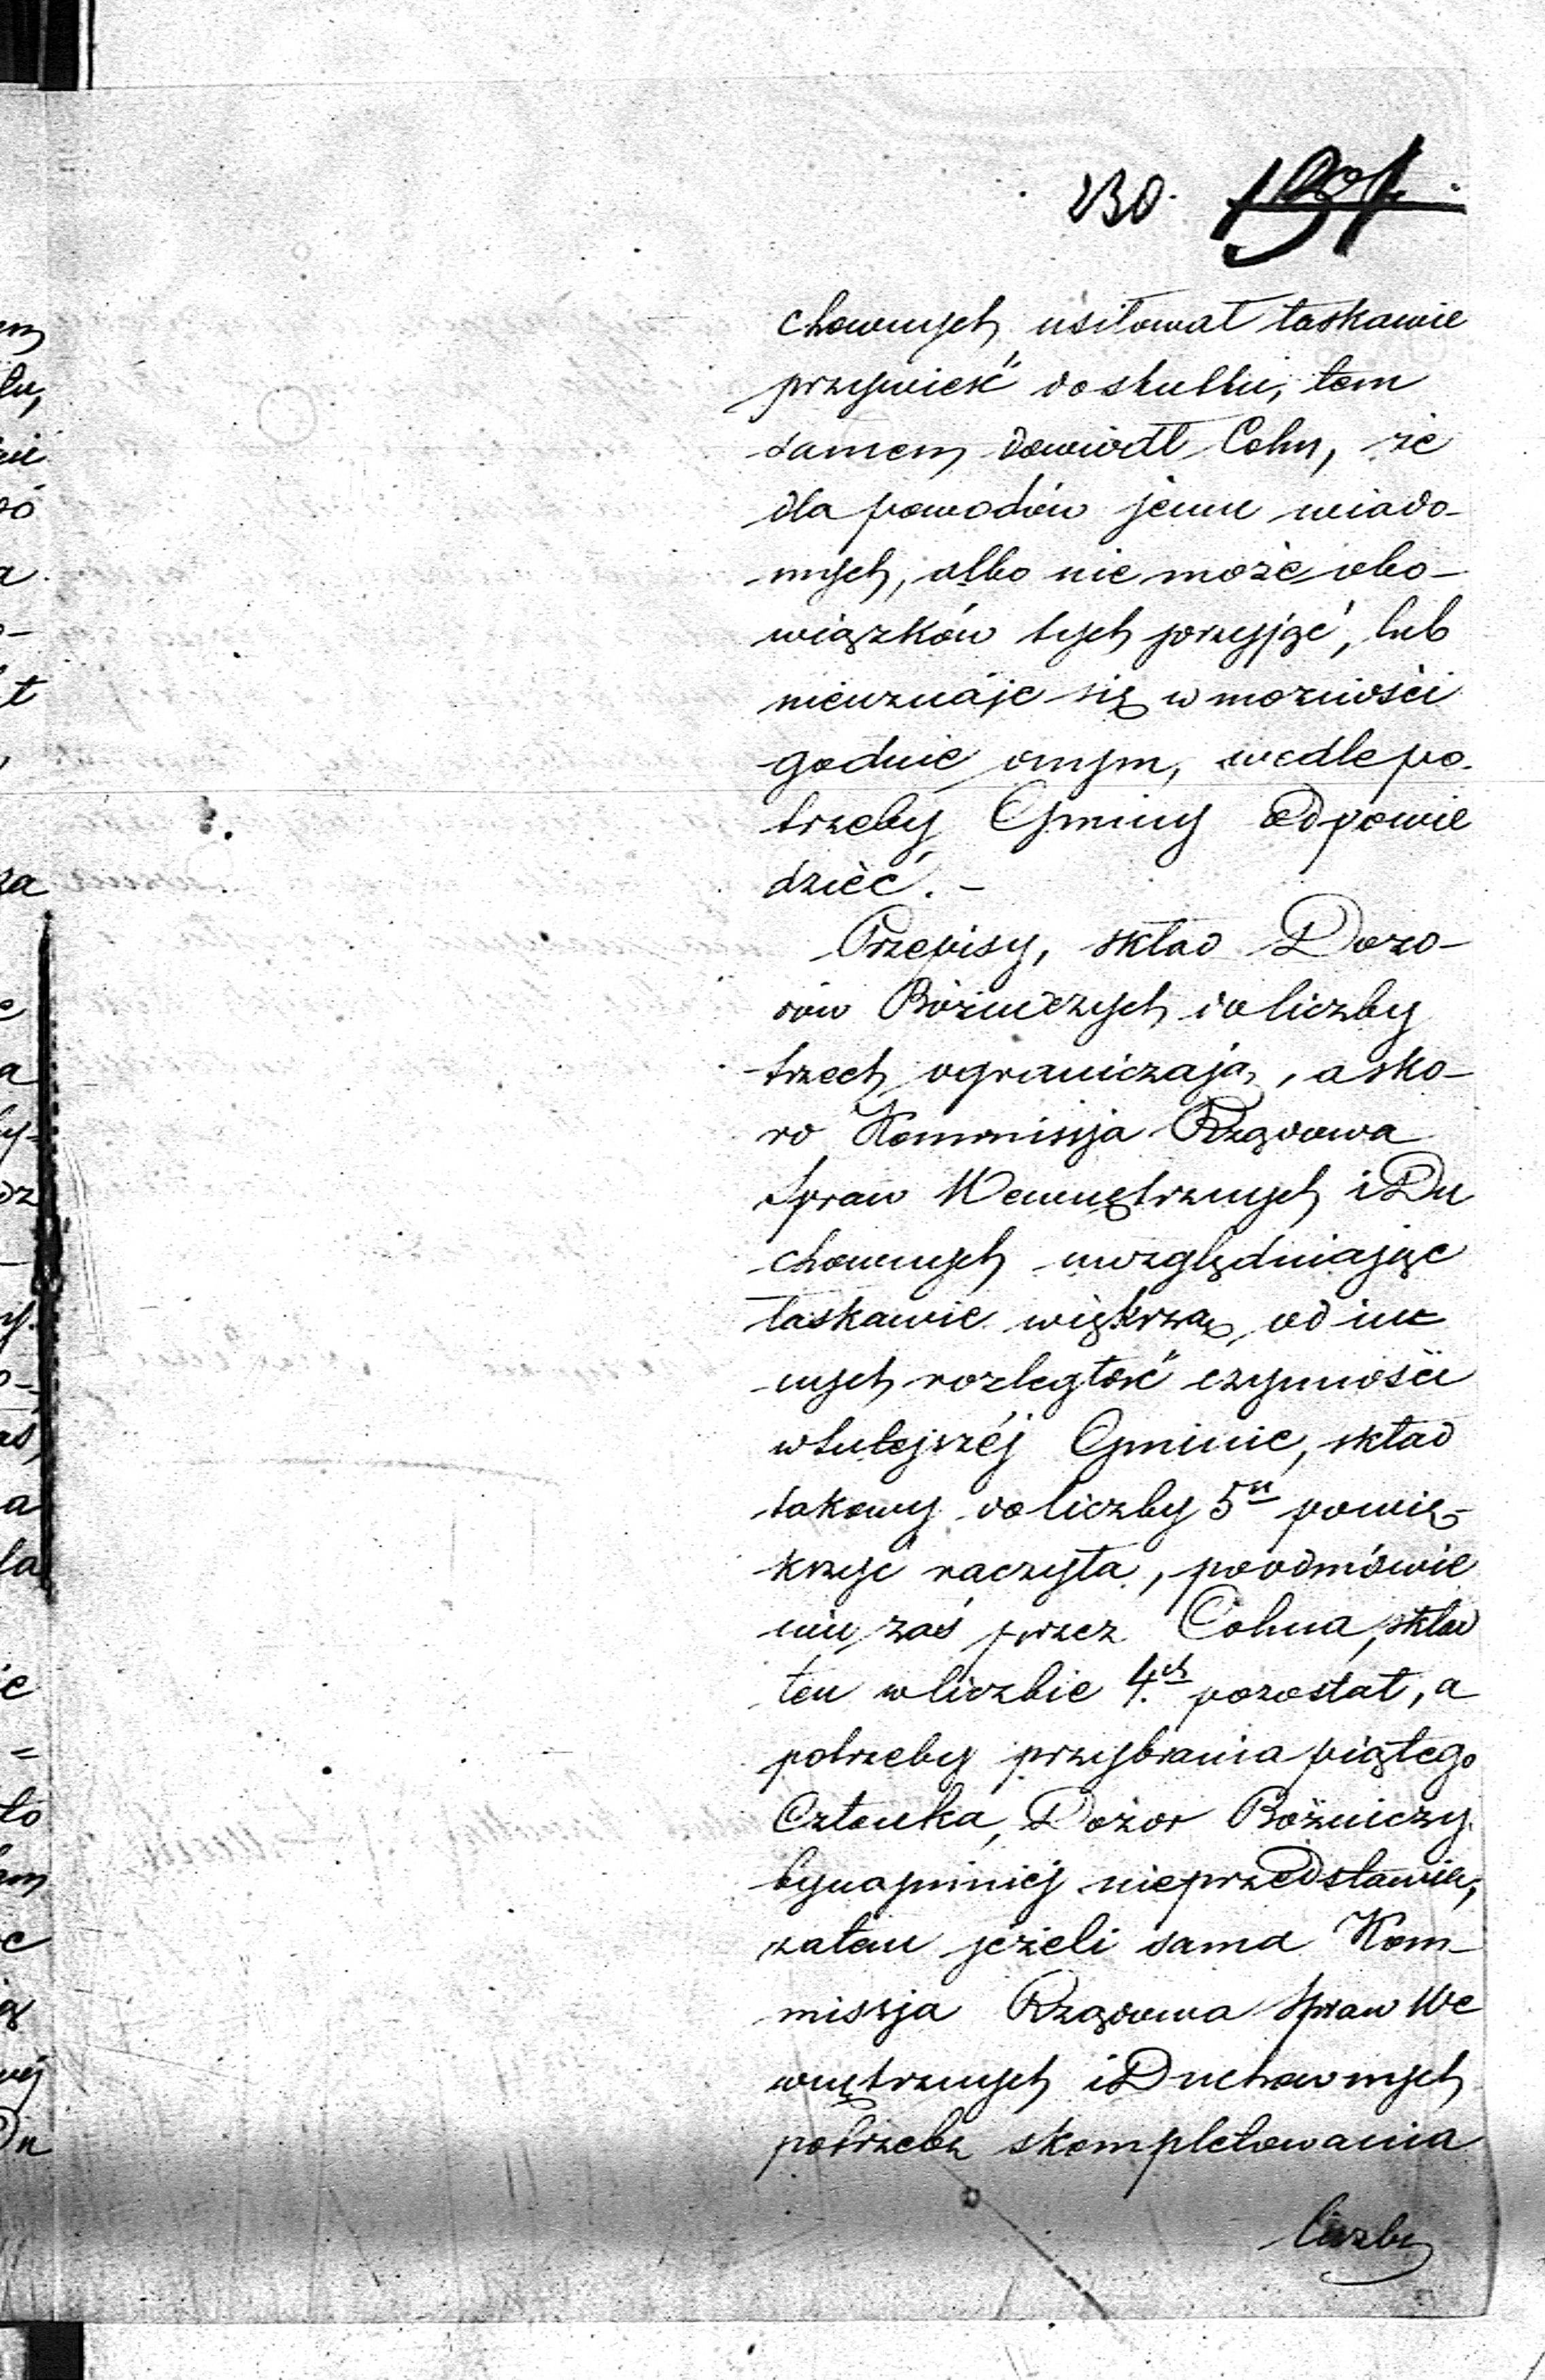 230. 131.
chownych usiłował łaskawie
przywieść do skutku, tem
samem dowiódł Cohn, że
dla powodów jemu wiado-
mych, albo nie może obo-
wiązków tych przyjąć, lub
nieuznaje się w możności
godnie onym, wedle po-
trzeby Gminy odpowie
dzieć. –
Przepisy, skład Dozo-
rów Bóżniczych do liczby
trzech ograniczają, a sko-
ro Kommissja Rządowa
Spraw Wewnętrznych i Du
chownych uwzględniając
łaskawie większą od in-
nych rozległość czynności
w tutejszéj Gminie, skład
takowy do liczby 5u powię-
kszyć raczyła, po odmówie
niu zaś przez Cohna, skład
ten w liczbie 4.ch pozostał, a
potrzeby przybrania piątego
Członka, Dozór Bóżniczy
bynajmniej nieprzedstawia,
zatem jeżeli sama Kom-
missja Rządowa Spraw We
wnętrznych i Duchownych
potrzebę skompletowania
liczby